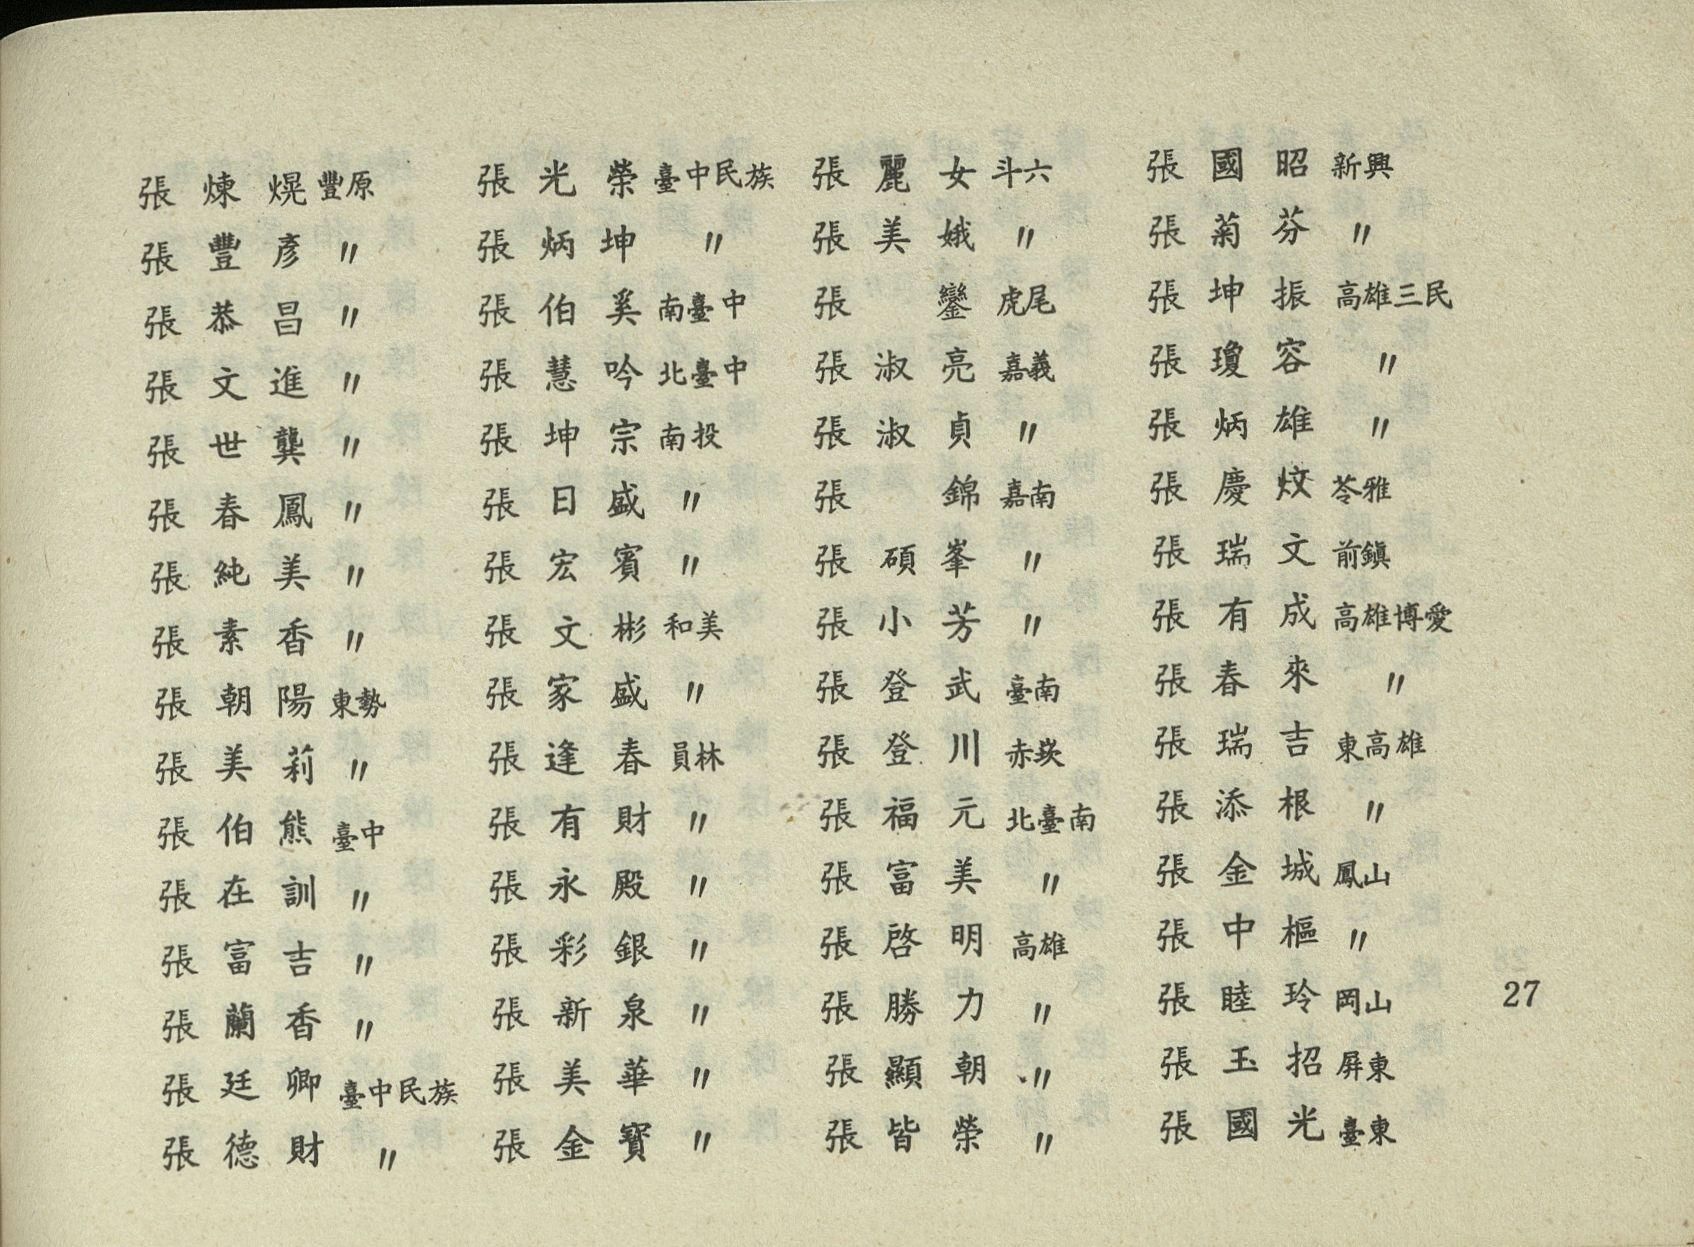 張煉熀豐原
張豐彥〃
張恭昌〃
張文進〃
張世龔〃
張春鳳〃
張純美〃
張素香〃
張朝陽東勢
張美莉〃
張伯熊臺中
張在訓〃
張富吉〃
張蘭香〃
張廷卿臺中民族
張德財〃
張光榮臺中民族
張炳坤〃
張伯奚南臺中
張慧吟北臺中
張坤宗南投
張日盛〃
張宏賓〃
張文彬和美
張家盛〃
張逢春員林
張有財〃
張永殿〃
張彩銀〃
張新泉〃
張美華〃
張金寳〃
張麗女斗六
張美娥〃
張鑾虎尾
張淑亮嘉義
張淑貞〃
張錦嘉南
張碩峯〃
張小芳〃
張登武臺南
張登川赤崁
張福元北臺南
張富美〃
張啓明高雄
張勝力〃
張顯朝〃
張皆榮〃
張國昭新興
張菊芬〃
張坤振高雄三民
張瓊容〃
張炳雄〃
張慶炆苓雅
張瑞文前鎮
張有成高雄博愛
張春來〃
張瑞吉東高雄
張添根〃
張金城鳳山
張中樞〃
張睦玲岡山
張玉招屏東
張國光臺東
27